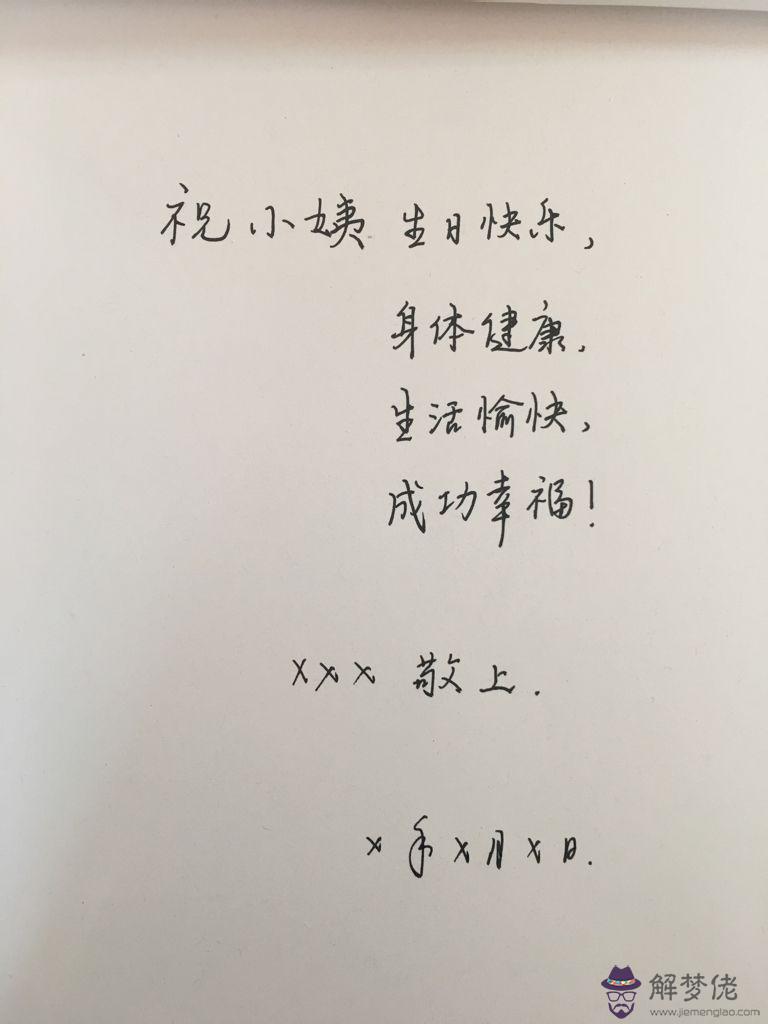 祝小姨 生日快乐，
身体健康，
生活愉快，
成功幸福！
xxx 敬上．
x年x月x日．
解梦佬
www.jiemenglao.com